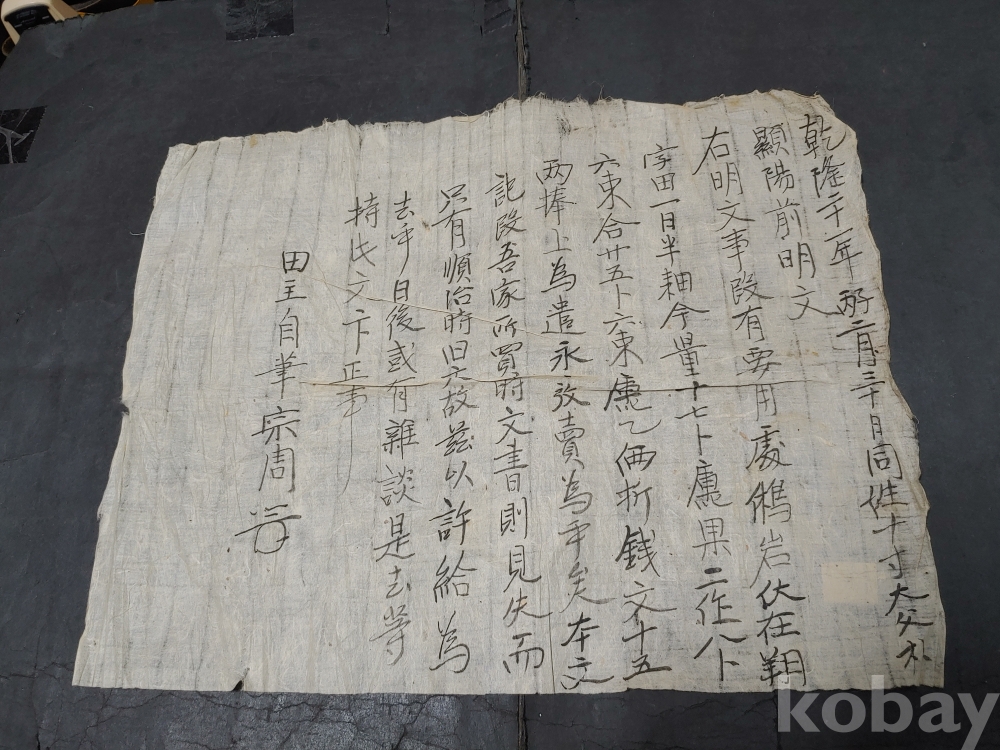 乾隆二十一年丙子二月三十日同姓十寸大父朴
顯陽前明文
右明文事段有要用處鵂岩伏在翔
字田一日半耕今量十七卜廤果二作八卜
六束合廿五卜六束廤乙価折錢文十五
兩捧上為遣永放賣為乎矣本文
記段吾家所買時文書則見失而
只有順治時旧文故玆以許給為
去乎日後或有雜談是去等
持此文卞正事
田主自筆宗周
kobay